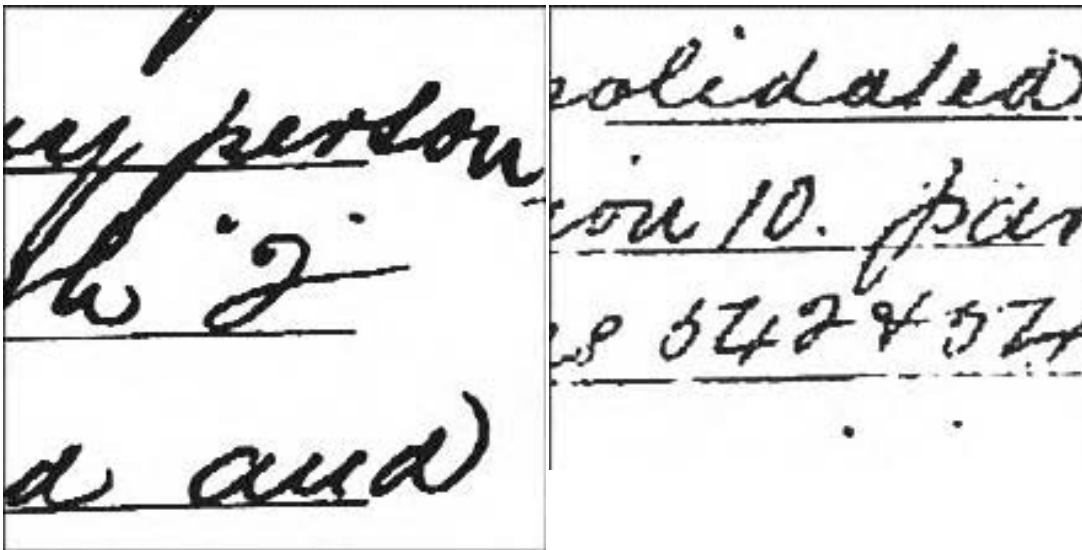 person
"2"
d and
solidated
ion 10. par
542 & 54